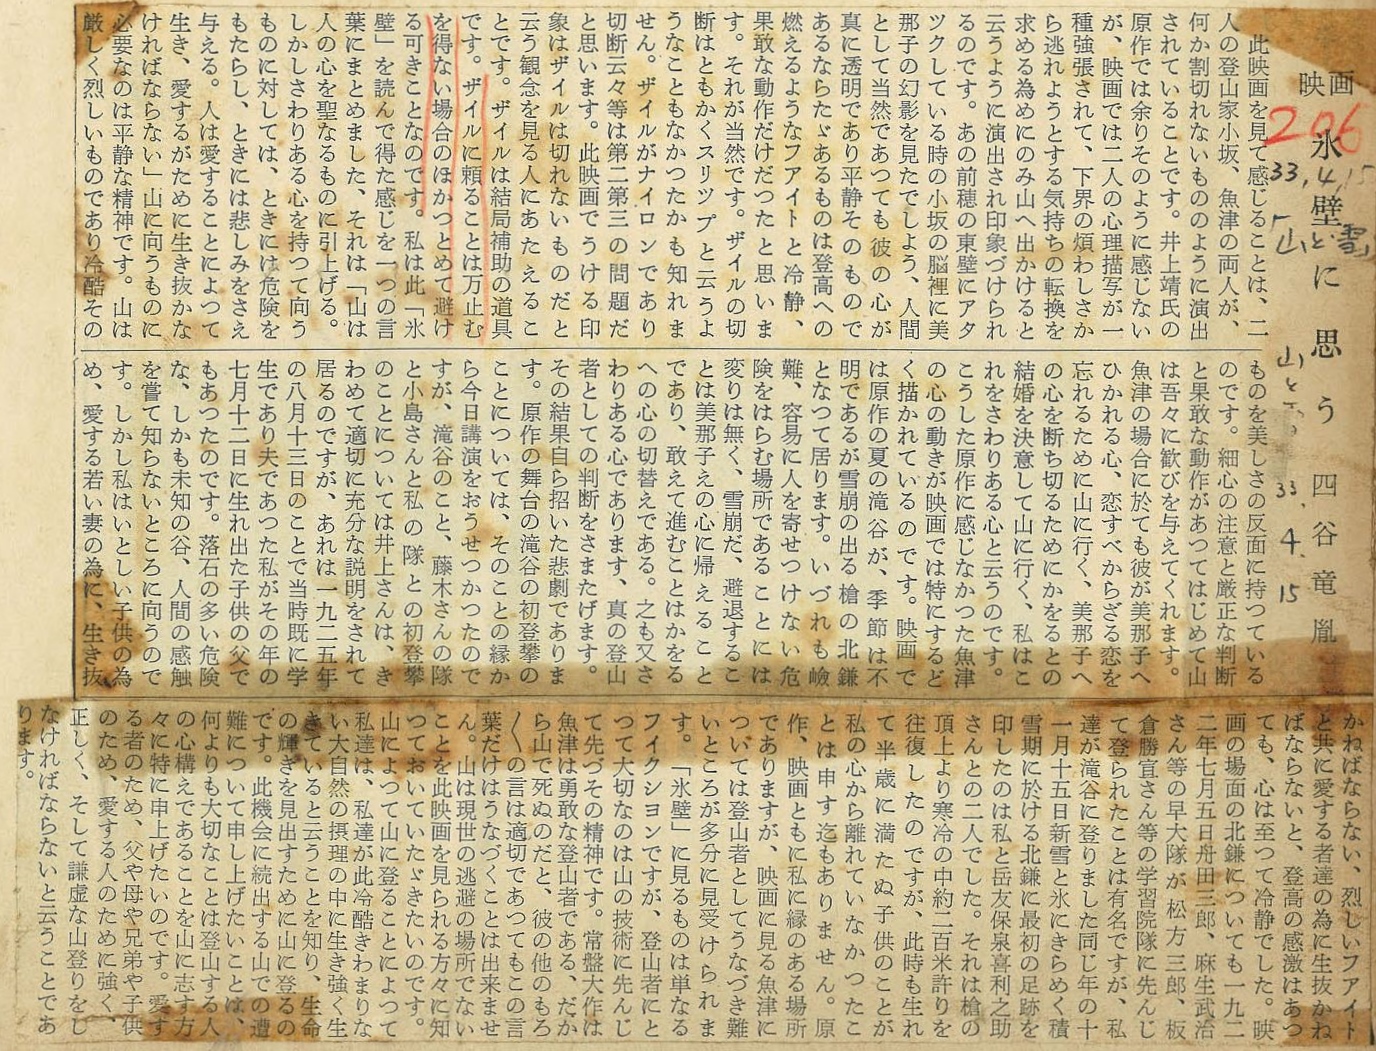 映画
206
氷壁に思う 四谷竜胤
33,4,15
山と雪
山と雪 33. 4. 15
此映画を見て感じることは、二
人の登山家小坂、魚津の両人が、
何か割切れないもののように演出
されていることです。井上靖氏の
原作では余りそのように感じない
が、映画では二人の心理描写が一
種強張されて、下界の煩わしさか
ら逃れようとする気持ちの転換を
求める為めにのみ山へ出かけると
云うように演出され印象づけられ
るのです。あの前穂の東壁にアタ
ツクしている時の小坂の脳裡に美
那子の幻影を見たでしよう、人間
として当然であつても彼の心が
真に透明であり平静そのもので
あるならたゞあるものは登高への
燃えるようなフアイトと冷静、
果敢な動作だけだつたと思いま
す。それが当然です。ザイルの切
断はともかくスリツプと云うよ
うなこともなかつたかも知れま
せん。ザイルがナイロンであり
切断云々等は第二第三の問題だ
と思います。此映画でうける印
象はザイルは切れないものだと
云う観念を見る人にあたえるこ
とです。ザイルは結局補助の道具
です。ザイルに頼ることは万止む
を得ない場合のほかつとめて避け
る可きことなのです。私は此「氷
壁」を読んで得た感じを一つの言
葉にまとめました、それは「山は
人の心を聖なるものに引上げる。
しかしさわりある心を持つて向う
ものに対しては、ときには危険を
もたらし、ときには悲しみをさえ
与える。人は愛することによつて
生き、愛するがために生き抜かな
ければならない」山に向うものに
必要なのは平静な精神です。山は
厳しく烈しいものであり冷酷その
ものを美しさの反面に持つている
のです。細心の注意と厳正な判断
と果敢な動作があつてはじめて山
は吾々に歓びを与えてくれます。
魚津の場合に於ても彼が美那子へ
ひかれる心、恋すべからざる恋を
忘れるために山に行く、美那子へ
の心を断ち切るためにかをるとの
結婚を決意して山に行く、私はこ
れをさわりある心と云うのです。
こうした原作に感じなかつた魚津
の心の動きが映画では特にするど
く描かれているのです。映画で
は原作の夏の滝谷が、季節は不
明であるが雪崩の出る槍の北鎌
となつて居ります。いづれも嶮
難、容易に人を寄せつけない危
険をはらむ場所であることには
変りは無く、雪崩だ、避退するこ
とは美那子えの心に帰えること
であり、敢えて進むことはかをる
への心の切替えである。之も又さ
わりある心であります、真の登山
者としての判断をさまたげます。
その結果自ら招いた悲劇でありま
す。原作の舞台の滝谷の初登攀の
ことについては、そのことの縁か
ら今日講演をおうせつかつたので
すが、滝谷のこと、藤木さんの隊
と小島さんと私の隊との初登攀
のことについては井上さんは、き
わめて適切に充分な説明をされて
居るのですが、あれは一九二五年
の八月十三日のことで当時既に学
生であり夫であつた私がその年の
七月十二日に生れ出た子供の父で
もあつたのです。落石の多い危険
な、しかも未知の谷、人間の感触
を嘗て知らないところに向うので
す。しかし私はいとしい子供の為
め、愛する若い妻の為に、生き抜
かねばならない、烈しいフアイト
と共に愛する者達の為に生抜かね
ばならないと、登高の感激はあつ
ても、心は至つて冷静でした。映
画の場面の北鎌についても一九二
二年七月五日舟田三郎、麻生武治
さん等の早大隊が松方三郎、板
倉勝宣さん等の学習院隊に先んじ
て登られたことは有名ですが、私
達が滝谷に登りました同じ年の十
一月十五日新雪と氷にきらめく積
雪期に於ける北鎌に最初の足跡を
印したのは私と岳友保泉喜利之助
さんとの二人でした。それは槍の
頂上より寒冷の中約二百米許りを
往復したのですが、此時も生れ
て半歳に満たぬ子供のことが
私の心から離れていなかつたこ
とは申す迄もありません。原
作、映画ともに私に縁のある場所
でありますが、映画に見る魚津に
ついては登山者としてうなづき難
いところが多分に見受けられま
す。「氷壁」に見るものは単なる
フイクシヨンですが、登山者にと
つて大切なのは山の技術に先んじ
て先づその精神です。常盤大作は
魚津は勇敢な登山者である、だか
ら山で死ぬのだと、彼の他のもろ
〱の言は適切であつてもこの言
葉だけはうなづくことは出来ませ
ん。山は現世の逃避の場所でない
ことを此映画を見られる方々に知
つておいていたゞきたいのです。
山によつて山に登ることによつて
私達は、私達が此冷酷きわまりな
い大自然の摂理の中に生き強く生
きていると云うことを知り、生命
の輝きを見出すために山に登るの
です。此機会に続出する山での遭
難について申し上げたいことは、
何よりも大切なことは登山する人
の心構えであることを山に志す方
々に特に申上げたいのです。愛す
る者のため、父や母や兄弟や子供
のため、愛する人のために強く、
正しく、そして謙虚な山登りをし
なければならないと云うことであ
ります。